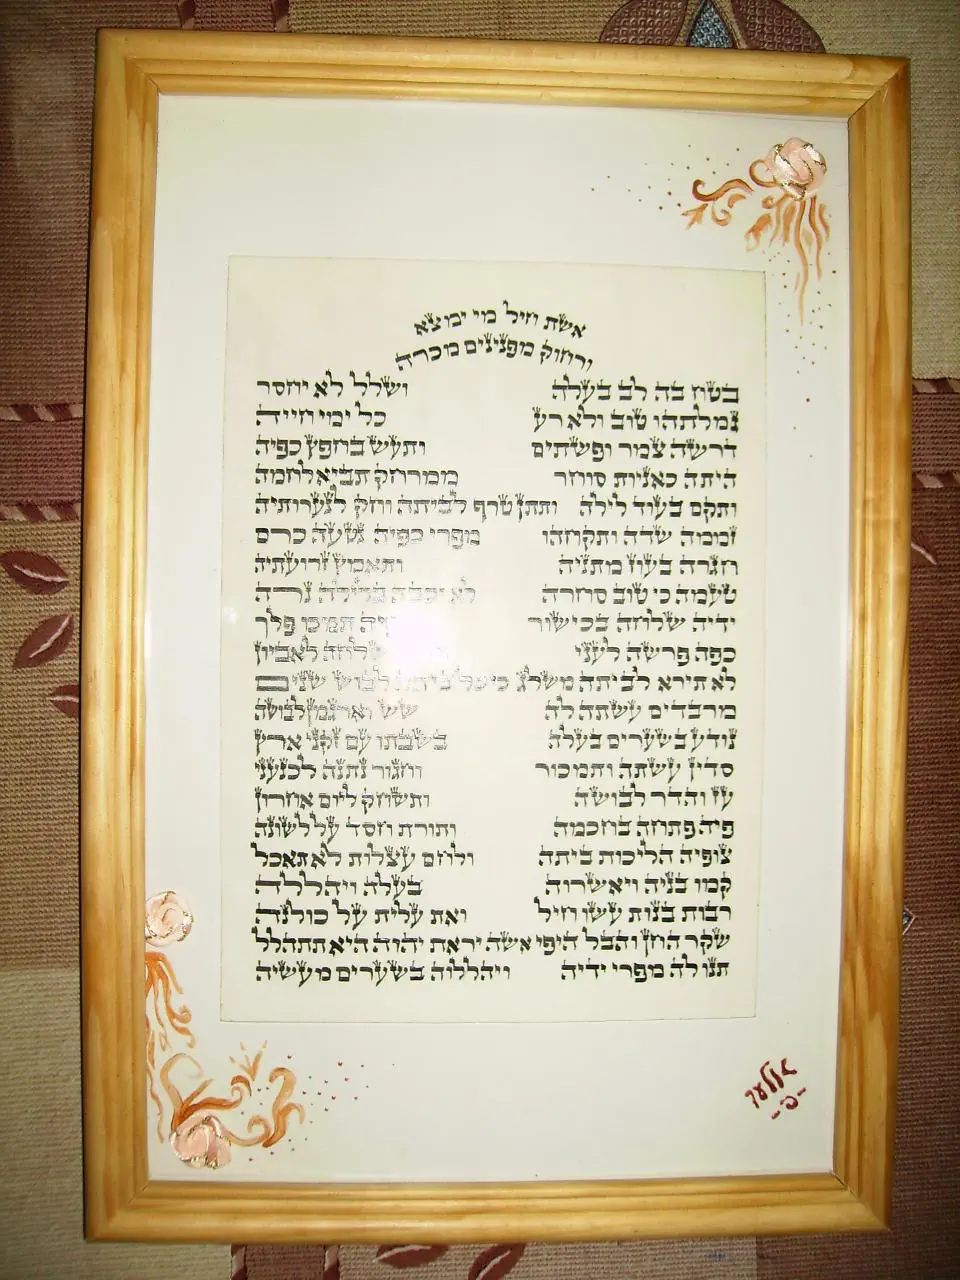 אשת חיל מי ימצא
ורחוק מפנינים מכרה
בטח בה לב בעלה ושלל לא יחסר
גמלתהו טוב ולא רע כל ימי חייה
דרשה צמר ופשתים ותעש בחפץ כפיה
היתה כאניות סוחר ממרחק תביא לחמה
ותקם בעוד לילה ותתן טרף לביתה וחק לנערותיה
זממה שדה ותקחהו מפרי כפיה נטעה כרם
חגרה בעוז מתניה ותאמץ זרועתיה
טעמה כי טוב סחרה לא יכבה בלילה נרה
ידיה שלחה בכישור תמכו פלך
כפה פרשה לעני שלחה לאביון
לא תירא לביתה משלג כי כל ביתה לבוש שנים
מרבדים עשתה לה שש וארגמן לבושה
נודע בשערים בעלה בשבתו עם זקני ארץ
סדין עשתה ותמכור וחגור נתנה לכנעני
עז והדר לבושה ותשחק ליום אחרון
פיה פתחה בחכמה ותורת חסד על לשונה
צופיה הליכות ביתה ולחם עצלות לא תאכל
קמו בניה ויאשרוה בעלה ויהללה
רבות בנות עשו חיל ואת עלית על כולנה
שקר החן והבל היפי אשה יראת יהוה היא תתהלל
תנו לה מפרי ידיה ויהללוה בשערים מעשיה